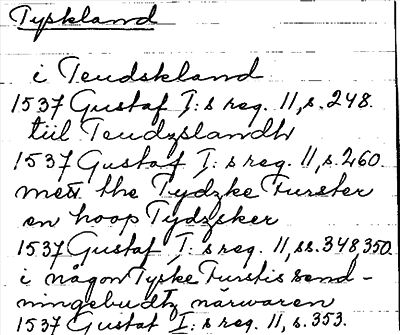 Tyskland
i Teudskland
1537 Gustaf I:s reg. 11, s. 248.
tiil Teudzslandh
1537 Gustaf I: s reg. 11, s. 260.
mett the Tydzke Furster
en hoop Tydzsker
1537 Gustaf I: s reg. 11, ss. 348, 350.
i någon Tyske Furstis send-
ningebudtz närwaren
1537 Gustaf I: s reg. 11, s. 353.